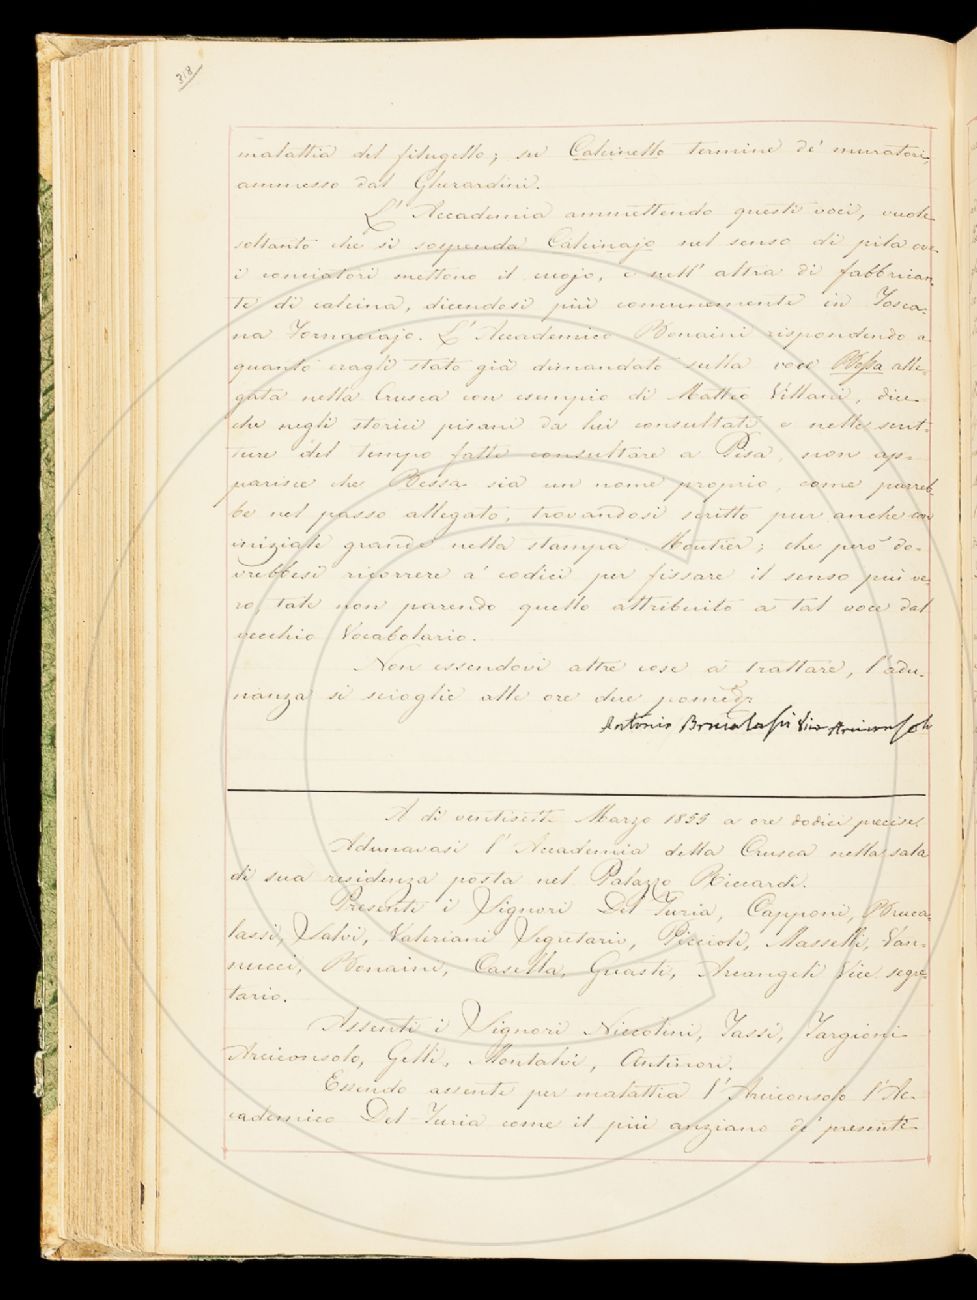 318
malattia del filugello; su Calcinello termine de' muratori,
ammesso dal Gherardini.
L'Accademia ammettendo questi voci, vuole
soltanto che si sospenda Calcinajo nel senso di pila ove
i conciatori mettono il cuojo, e nell'altra di fabbrican-
te di calcina, dicendosi più comunemente in Tosca-
na Fornaciajo. L'Accademico Bonaini rispondendo a
quanto eragli stato già dimandato sulla voce Bessa alle-
gata nella Crusca con esempio di Matteo Villani, dice
che negli storici pisani da lui consultati e nelle scrit-
ture del tempo fatte consultare a Pisa, non ap-
parisce che Bessa sia un nome proprio, come parreb-
be nel passo allegato, trovandosi scritto pur anche con
iniziale grande nella stampa Moutier; che però do-
vrebbesi ricorrere a' codici per fissare il senso più ve-
ro, tale non parendo quello attribuito a tal voce dal
vecchio Vocabolario.
Non essendovi altre cose a trattare, l'adu-
nanza si scioglie alle ore due pomedne
Antonio Brucalassi Vice Arciconsolo
A dì ventisette Marzo 1855 a ore dodici precise.
Adunavasi l'Accademia della Crusca nella sala
di sua residenza posta nel Palazzo Riccardi.
Presenti i Signori Del Furia, Capponi, Bruca-
lassi, Salvi, Valeriani Segretario, Piccioli, Masselli, Van-
nucci, Bonaini, Casella, Guasti, Arcangeli Vice segre-
tario.
Assenti i Signori Niccolini, Tassi, Targioni
Arciconsolo, Gelli, Montalvi, Antinori.
Essendo assente per malattia l'Arciconsolo l'Ac-
cademico Del-Furia come il più anziano de' presenti